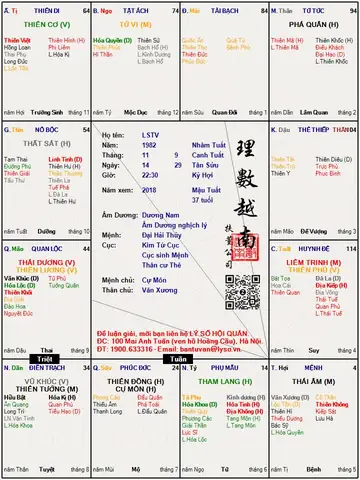 Â. Tị THIÊN DI 64
THIÊN CƠ (V)
Thiên Việt Thiên Hình (H)
Hồng Loan Phi Liêm
Thai Phụ L.Hóa Kị
Long Đức
L.Lộc Tồn
năm Hợi Trường Sinh tháng 11
B. Ngọ TẬT ÁCH 74
TỬ VI (M)
Hóa Quyền (D) Thiên Sứ
Thiên Phúc Bạch Hổ (H)
Hỉ Thần L.Kình Dương
L.Bạch Hổ
năm Tý Mộc dục tháng 12
Đ. Mùi TÀI BẠCH 84
Quốc Ấn Quả Tú
Thiên Thọ Bệnh Phù
Thiên Đức
Phúc Đức
năm Sửu Quan Đới tháng 1
M. Thân TỬ TỨC 94
PHÁ QUÂN (H)
Thiên Mã (H) Thiên Khốc (H)
L.Thiên Mã Điếu Khách
Đại Hao (D)
L.Thiên Khốc
năm Dần Lâm Quan tháng 2
G. Thìn NÔ BỘC 54
THẤT SÁT (H)
Tam Thai Linh Tinh (D)
Đường Phù Thiên Hư (H)
Thiên Giải Thiên Thương
Tấu Thư Thiên La
Tuế Phá
L.Đà La
L.Thiên Hư
năm Tuất Dưỡng tháng 10
Họ tên: LSTV
Năm: 1982 Nhâm Tuất
Tháng: 11 9 Canh Tuất
Ngày: 14 29 Tân Sửu
Giờ: 22:30 Kỷ Hợi
Năm xem: 2018 Mậu Tuất
37 tuổi
Âm Dương: Dương Nam
Âm Dương nghịch lý
Mệnh: Đại Hải Thủy
Cục: Kim Tứ Cục
Cục sinh Mệnh
Thân cư Thê
Chủ mệnh: Cự Môn
Thân chủ: Văn Xương
理數越南
扶鸞公司
Để luận giải, mời bạn liên hệ LÝ SỐ HỘI QUÁN.
ĐC: 100 Mai Anh Tuấn (ven hồ Hoàng Cầu), Hà Nội.
ĐT: 1900.633316 - Email: bantuvan@lyso.vn.
K. Dậu THÊ THIẾP THÂN 104
Thiên Tài Thiên Diêu (D)
Thiên Trù Trực Phù
Thiên Y Phục Binh
năm Mão Đế Vượng tháng 3
Q. Mão QUAN LỘC 44
THÁI DƯƠNG (V)
THIÊN LƯƠNG (V)
Văn Khúc (D) Tử Phù
Hóa Lộc (D) Tướng Quân
Thiên Khôi
Bát Tọa
Đào Hoa
Nguyệt Đức
năm Dậu Thai tháng 9
C. Tuất HUYNH ĐỆ 114
LIÊM TRINH (M)
THIÊN PHỦ (V)
Bát Tọa Đà La (D)
Hoa Cái Địa Không (H)
Thiên Quan Địa Võng
Thái Tuế
L.Thái Tuế
năm Thìn Suy tháng 4
Triệt
Tuần
N. Dần ĐIỀN TRẠCH 34
VŨ KHÚC (V)
THIÊN TƯỚNG (M)
Hữu Bật Hóa Kị (H)
Ân Quang Quan Phù
Long Trì Tiểu Hao (D)
LN.Văn Tinh
L.Hóa Khoa
năm Thân Tuyệt tháng 8
Q. Sửu PHÚC ĐỨC 24
THIÊN ĐỒNG (H)
CỰ MÔN (H)
Phong Cáo Đẩu Quân
Thiếu Âm Phá Toái
Thanh Long L.Đẩu Quân
năm Mùi Mộ tháng 7
N. Tý PHỤ MẪU 14
THAM LANG (H)
Tả Phụ Kình dương (H)
Hóa Khoa (D) Hỏa Tinh (H)
Thiên Quý Tang Môn (H)
Phượng Các L.Tang Môn
Giải Thần
Lực Sĩ
L.Hóa Lộc
năm Ngọ Tử tháng 6
T. Hợi MỆNH 4
THÁI ÂM (M)
Văn Xương (D) Cô Thần
Lộc Tồn Thiên Không
Thiên Hỉ Kiếp Sát
Thiếu Dương Lưu Hà
Bác Sỹ
L.Hóa Quyền
năm Tị Bệnh tháng 5